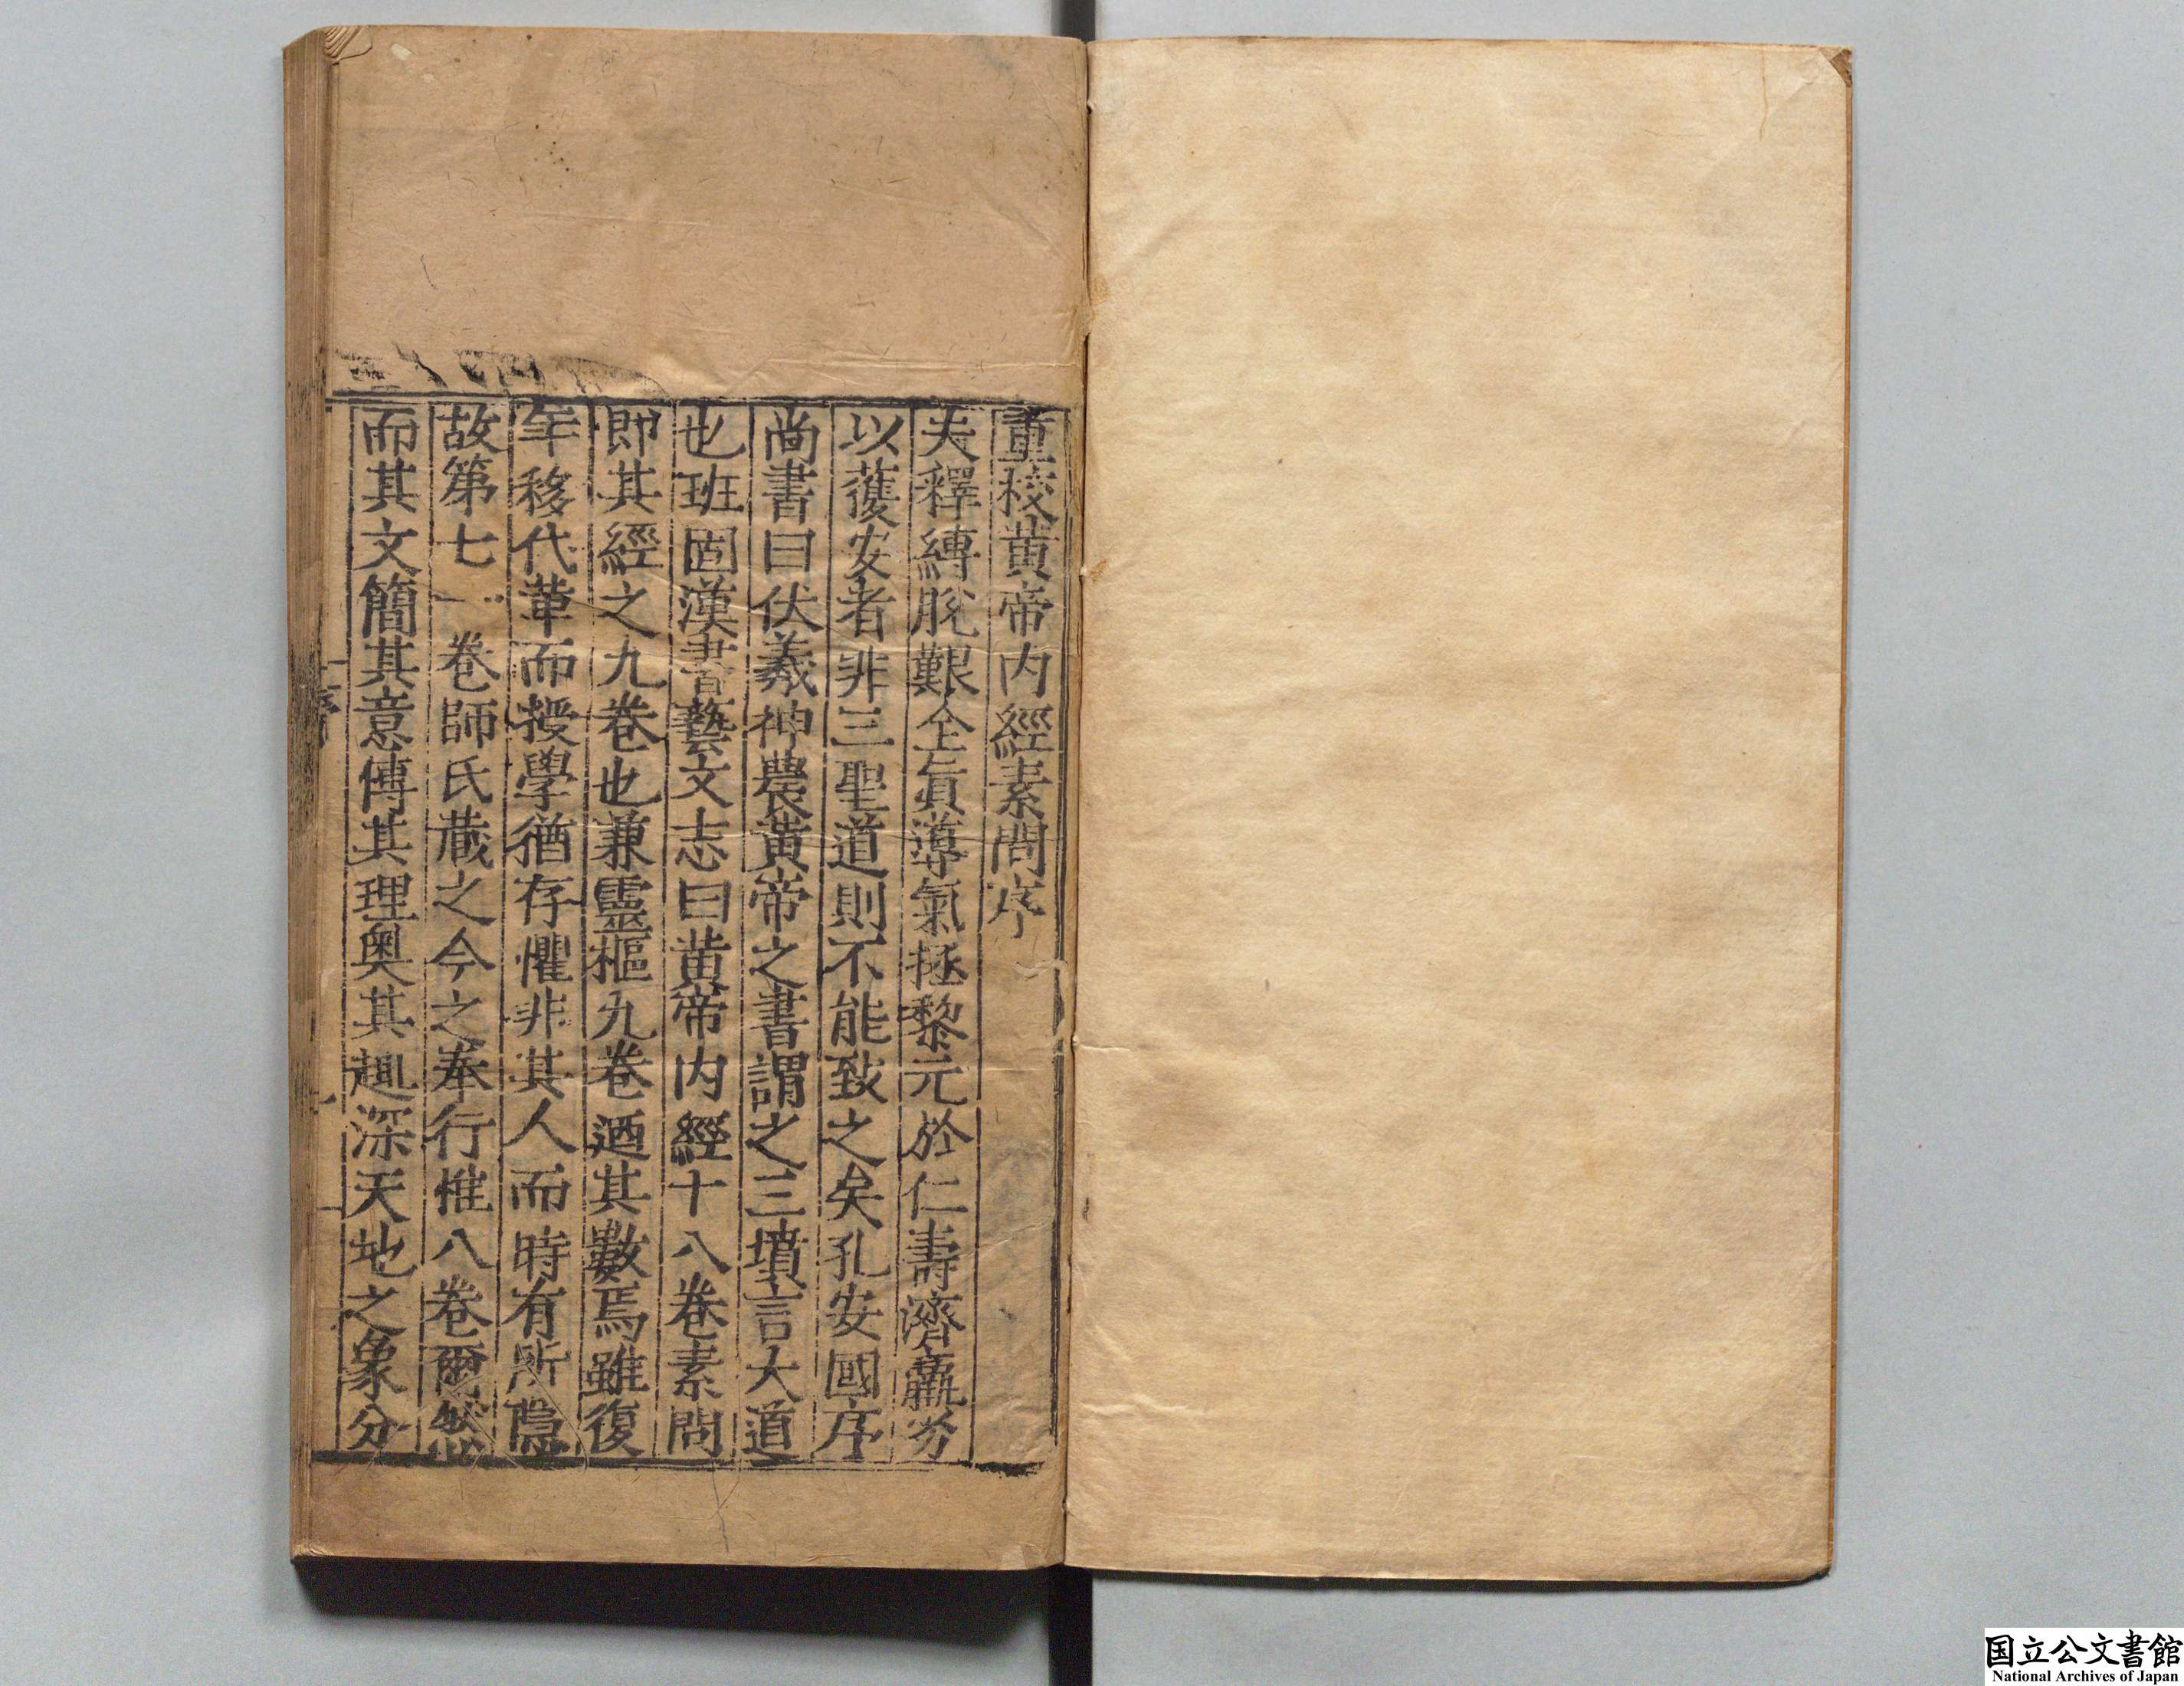 重校黄帝内經素問序
夫釋縛脫艱全眞導氣拯黎元於仁壽濟羸劣
以獲安者非三聖道則不能致之矣孔安國序
尚書曰伏羲神農黃帝之書謂之三墳言大道
也班固漢書藝文志曰黄帝内經十八卷素問
即其經之九卷也兼靈樞九卷廼其數焉雖復
年移代革而授學猶存懼非其人而時有所隱
故第七一卷師氏藏之今之奉行惟八卷爾然
而其文簡其意博其理奥其趣深天地之象分
序
国立公文書館
National Archives of Japan